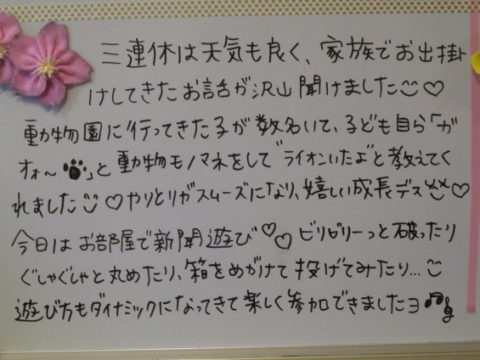 三連休は天気も良く、家族でお出掛
けしてきたお話が沢山聞けました♡
動物園に行ってきた子が数名いて、子ども自ら「ガ
オォ〜🐾」と動物モノマネをして"ライオンいたよ"と教えてく
れました♡やりとりがスムーズになり、嬉しい成長デス♡
今日はお部屋で新聞遊び♡♡ビリビリーっと破ったり
ぐしゃぐしゃと丸めたり、箱をめがけて投げてみたり…
遊び方もダイナミックになってきて楽しく参加できましたヨ♫